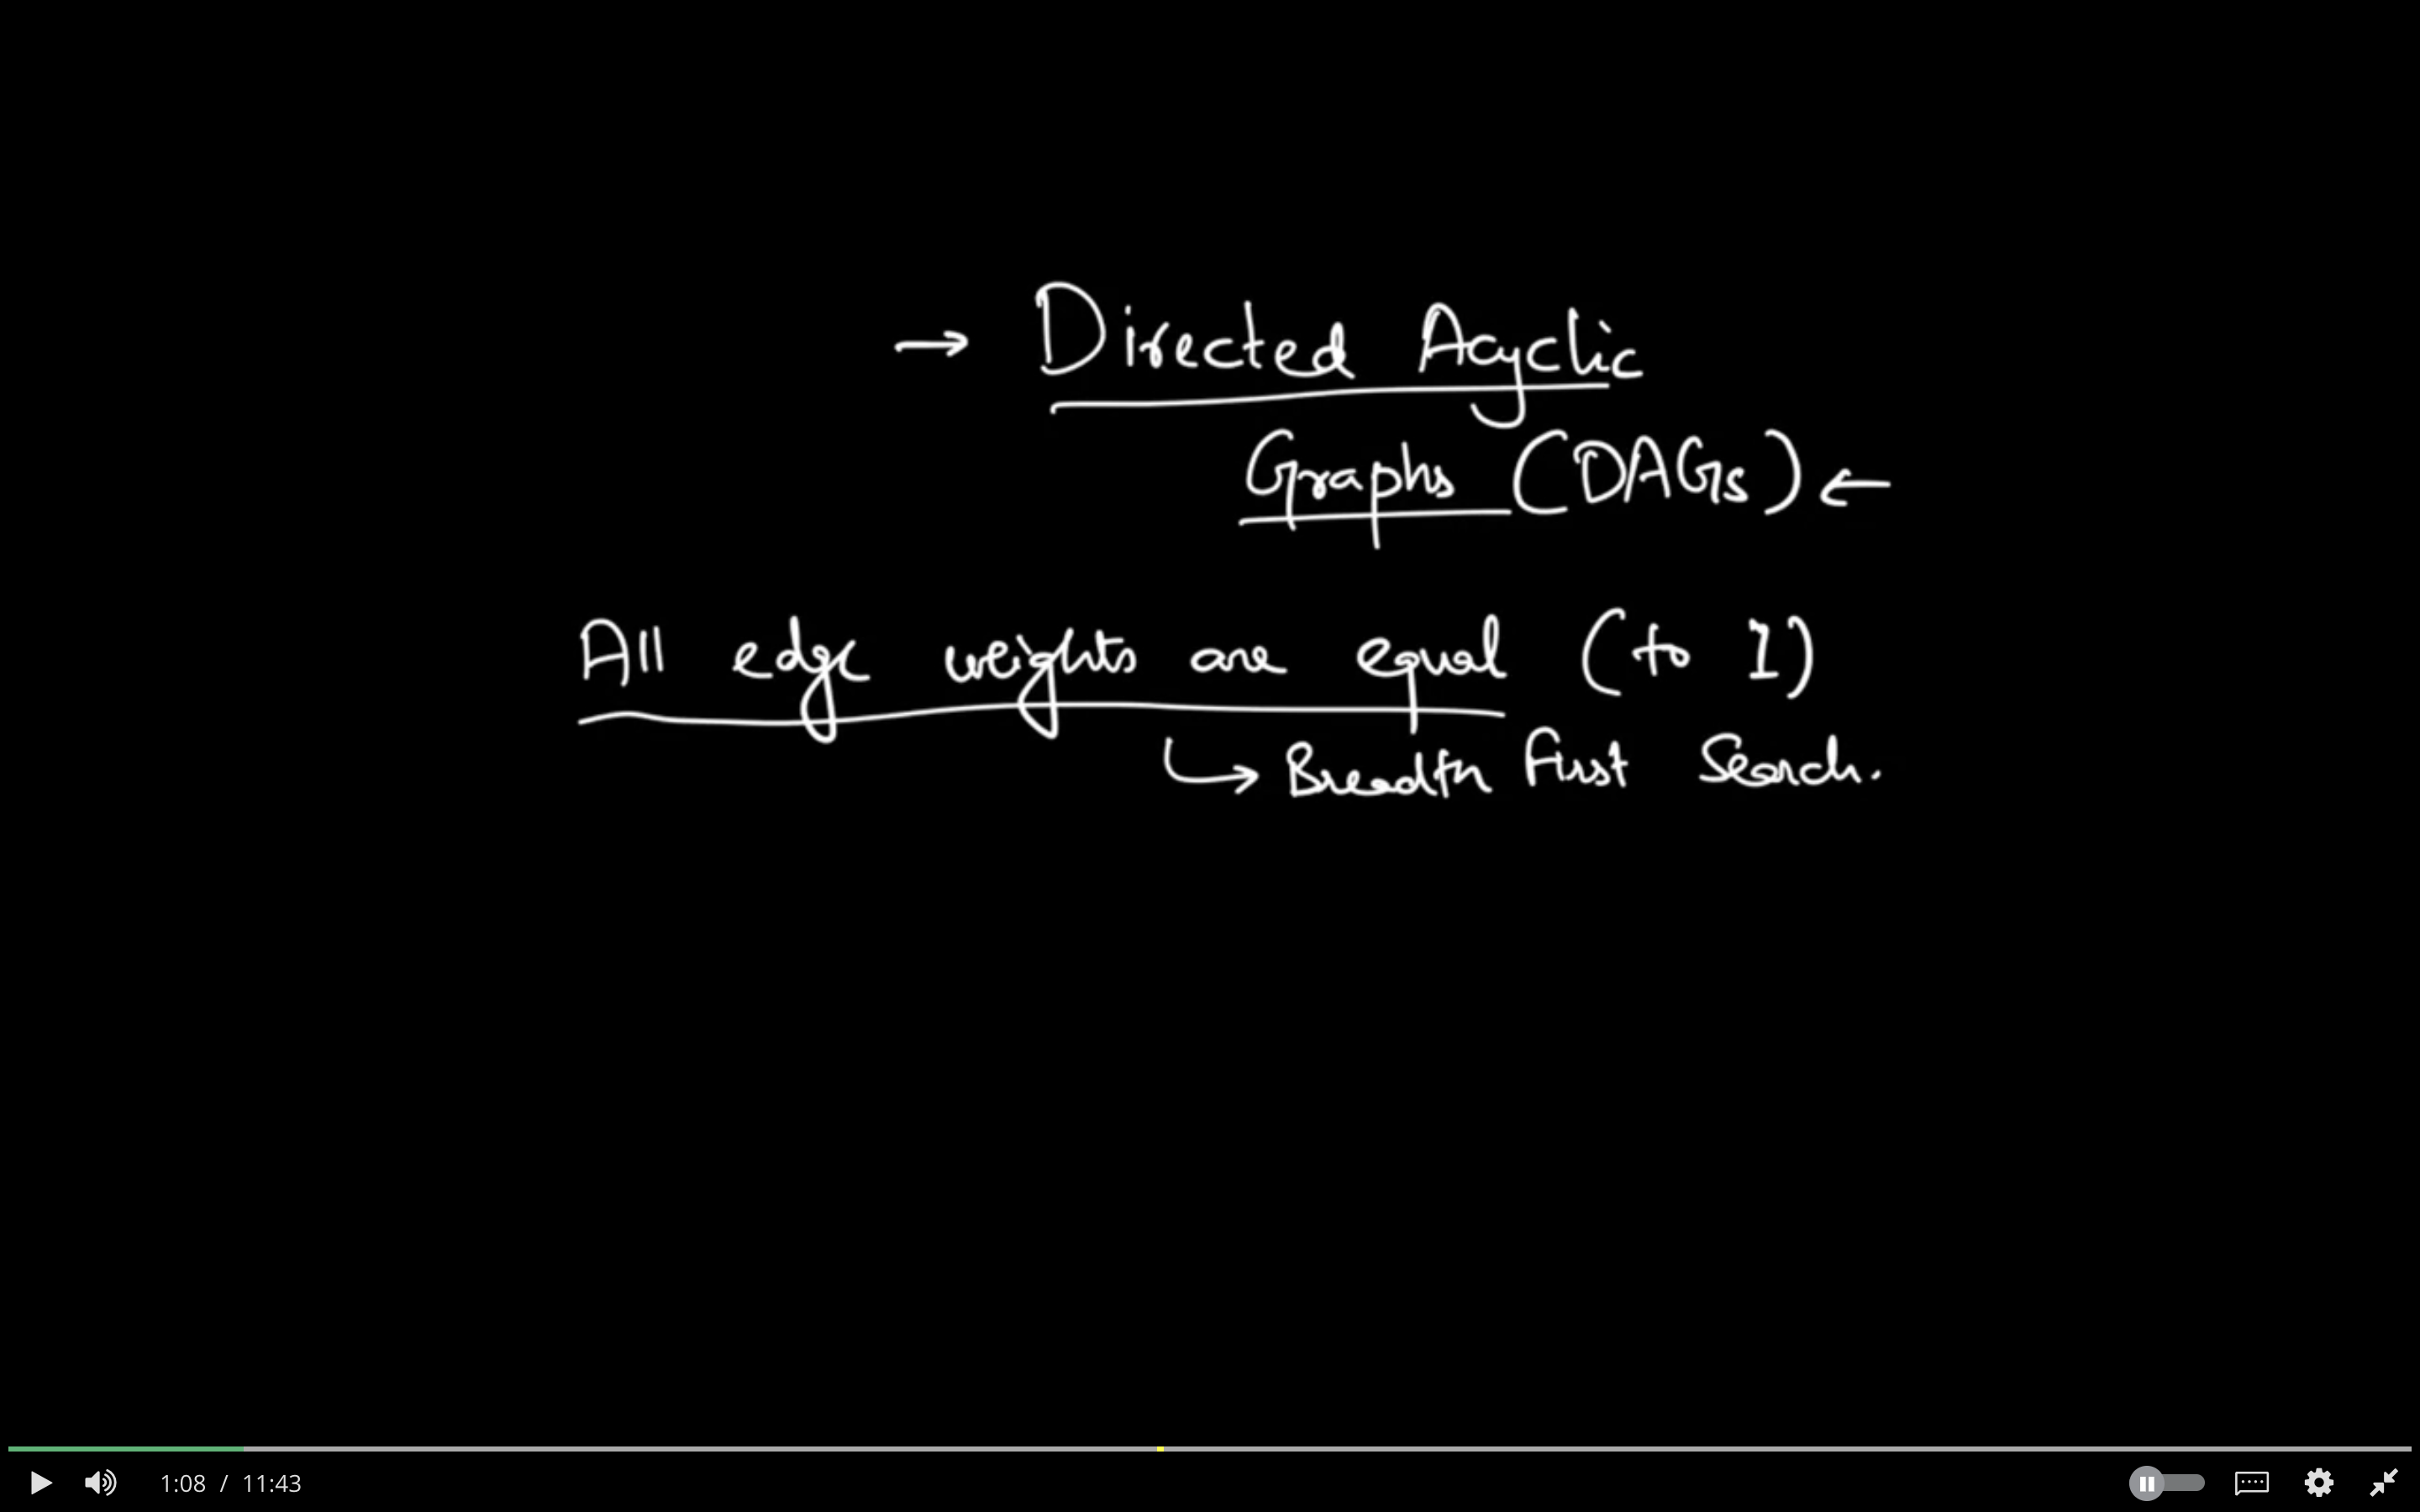 → Directed Acyclic
Graphs (DAGs) ←
All edge weights are equal (to 1)
↳ Breadth First Search.
1:08 / 11:43